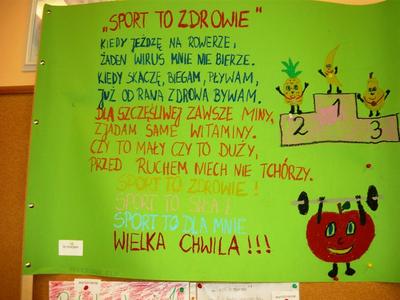 „SPORT TO ZDROWIE"
KIEDY JEŻDŻĘ NA ROWERZE,
ŻADEN WIRUS MNIE NIE BIERZE.
KIEDY SKACZĘ, BIEGAM, PŁYWAM,
JUŻ OD RANA ZDROWA BYWAM.
DLA SZCZĘŚLIWEJ ZAWSZE MINY,
ZJADAM SAME WITAMINY.
CZY TO MAŁY CZY TO DUŻY,
PRZED RUCHEM NIECH NIE TCHÓRZY.
SPORT TO ZDROWIE!
SPORT TO SIŁA!
SPORT TO DLA MNIE
WIELKA CHWILA!!!
2 1 3